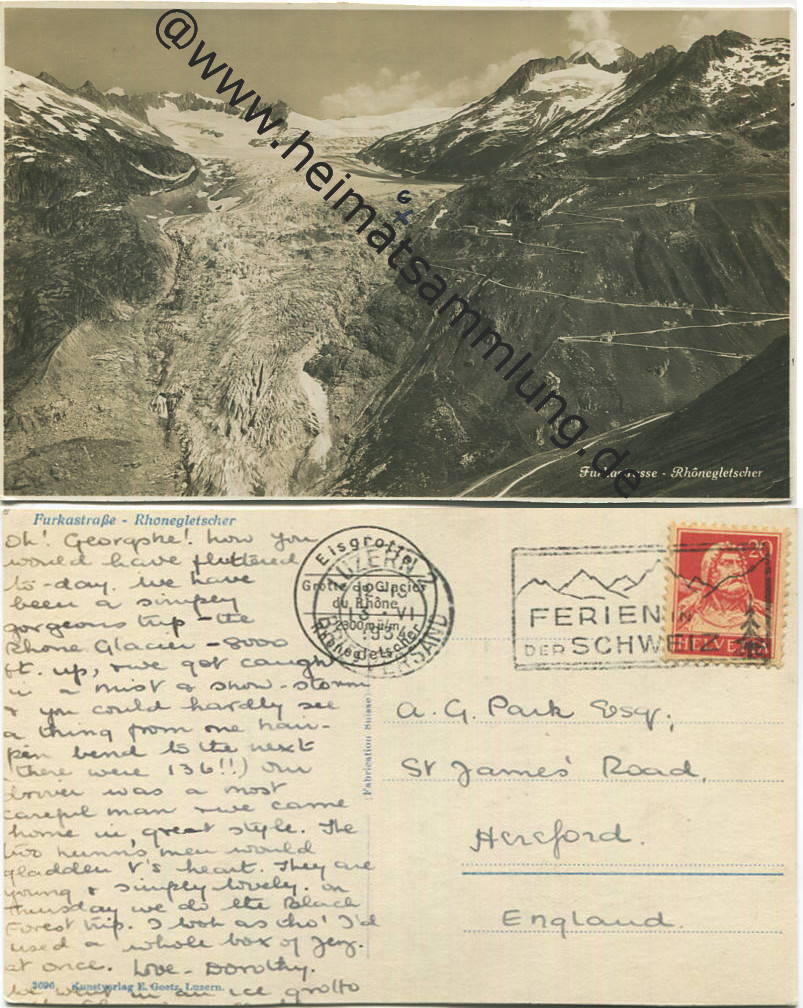 @www.heimatsammlung.de
Furkastrasse - Rhônegletscher
Furkastraße - Rhonegletscher
Oh! Georgphe! how you
would have fluttered
to-day. We have
been a simply
gorgeous trip - the
Rhone Glacier - 8000
ft. up, & we got caught
in a mist & snow-storm
& you could hardly see
a thing from one hair-
pin bend to the next
(there were 136!!) Our
driver was a most
careful man & we came
home in great style. The
two men would
gladden V's heart. They are
young & simply lovely. On
Thursday we do the Black
Forest trip. I look as tho' I'd
used a whole box of
at once. Love - Dorothy.
We went in an ice grotto
3096 Kunstverlag E. Goetz, Luzern.
Fabrication Suisse
Eisgrotte
Grotte du Glacier
du Rhône
2300 m ü/m
Rhonegletscher
LUZERN 2
13. VI
BRIEFVERSAND
FERIEN IN
DER SCHWEIZ
20
HELVETIA
A. G. Park Esq.,
St James' Road,
Hereford.
England.